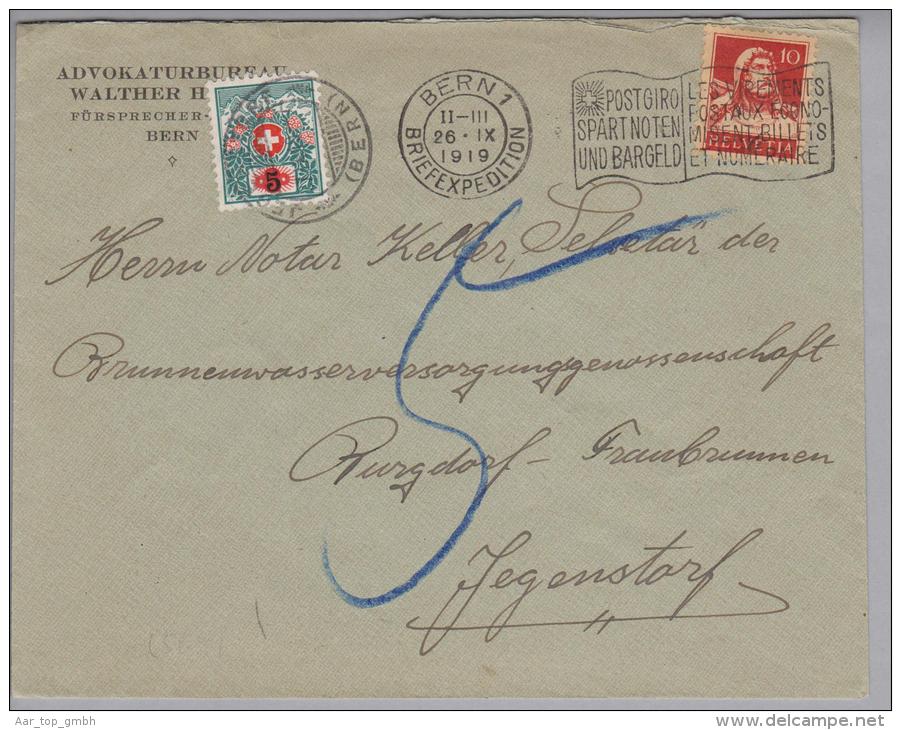 ADVOKATURBUREAU
WALTHER H
FÜRSPRECHER-
BERN
5
(BERN)
BERN 1
II-III
26·IX
1919
BRIEFEXPEDITION
POSTGIRO
SPART NOTEN
UND BARGELD
LES VIREMENTS
POSTAUX ECONO-
MISENT BILLETS
ET NUMERAIRE
10
HELVETIA
Herrn Notar Keller, Sekretär der
Brunnenwasserversorgunggenossenschaft
Burgdorf - Fraubrunnen
Jegenstorf
5
Aar_top_gmbh
delcampe.net